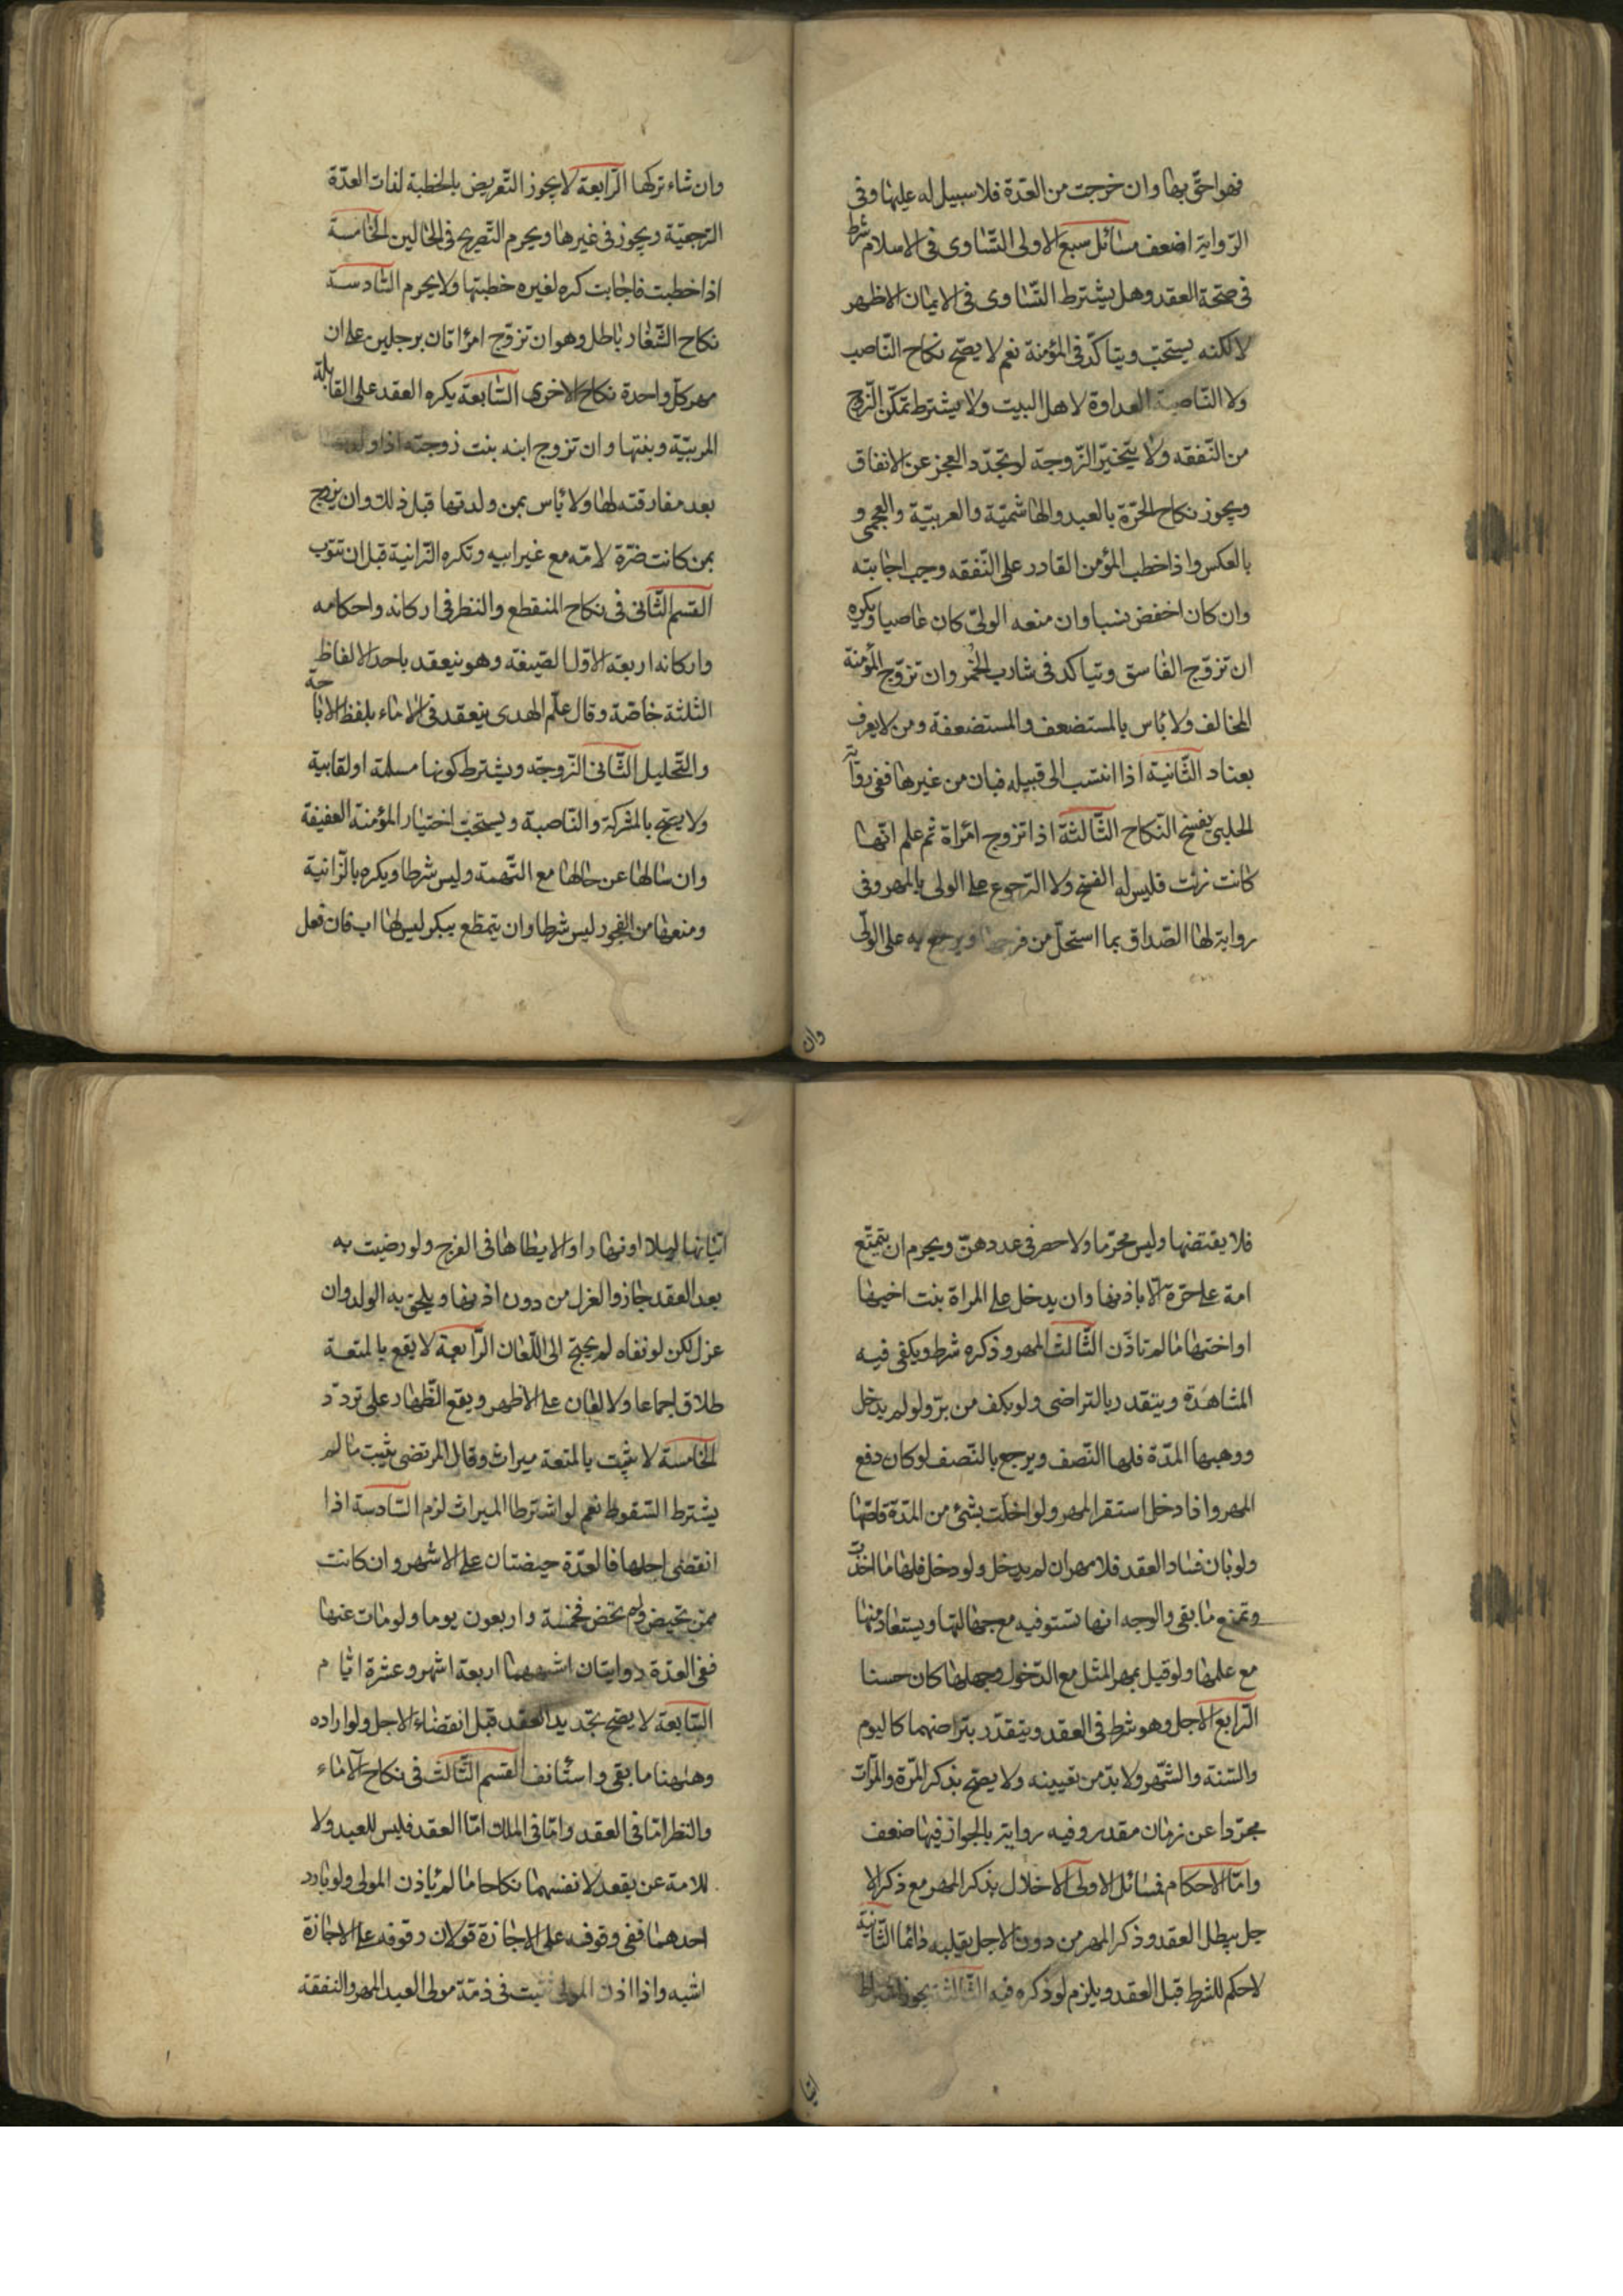 فهو احق بها وان خرجت من العدّة فلا سبيل له عليها وفى
الرّواية اضعف مسائل سبع الاولى التّساوى فى الاسلام شرط
فى صحّة العقد وهل يشترط التّساوى فى الايمان الاظهر
لا لكنه يستحبّ ويتاكّد فى المؤمنة نعم لا يصحّ نكاح النّاصب
ولا النّاصبة العداوة لاهل البيت ولا يشترط تمكّن الزّوج
من النّفقه ولا يتخيّر الزّوجة لو تجدّد العجز عن الانفاق
ويجوز نكاح الحرّة بالعبد والهاشميّة والعربيّة والعجمى و
بالعكس واذا خطب المؤمن القادر على النّفقه وجب اجابته
وان كان اخفض نسبا وان منعه الولىّ كان عاصيا ويكره
ان تزوّج الفاسق ويتاكد فى شارب الخمر وان تزوّج المؤمنة
المخالف ولا باس بالمستضعف والمستضعفة ومن لا يعرف
بعناد الثّانية اذا انتسب الى قبيله فبان من غيرها ففى رواية
الحلبى يفسخ النّكاح الثّالثة اذا تزوج امرأة ثم علم انّها
كانت زنت فليس له الفسخ ولا الرّجوع على الولى بالمهر وفى
رواية لها الصّداق بما استحلّ من فرجها ويرجع به على الولّى
وان
وان شاء تركها الرّابعة لا يجوز التّعريض بالخطبة لذات العدّة
الرّجعيّة ويجوز فى غيرها ويحرم التّصريح فى الحالين الخامسة
اذا خطبت فاجابت كره لغيره خطبتها ولا يحرم السّادسة
نكاح الشّغار باطل وهو ان تزوّج امرأتان برجلين على ان
مهر كلّ واحدة نكاح الاخرى السّابعة يكره العقد على القابلة
المربيّة وبنتها وان تزوج ابنه بنت زوجته اذا ولدتها
بعد مفارقته لها ولا باس بمن ولدتها قبل ذلك وان يزوج
بمن كانت ضرّة لامّه مع غير ابيه وتكره الزّانية قبل ان تتوب
القسم الثّانى فى نكاح المنقطع والنظر فى اركانه واحكامه
واركانه اربعة الاوّل الصّيغة وهو ينعقد باحد الالفاظ
الثلثة خاصّة وقال علم الهدى ينعقد فى الاماء بلفظ الاباحة
والتّحليل الثّانى الزّوجة ويشترط كونها مسلمة او لقابية
ولا يصحّ بالمشركة والنّاصبة ويستحبّ اختيار المؤمنة العفيفة
وان سالها عن حالها مع التّهمة وليس شرطا ويكره بالزّانية
ومنعها من الفجور ليس شرطا وان يتمتّع ببكر ليس لها اب فان فعل
فلا يقتضها وليس محرّما ولا حصر فى عددهنّ ويحرم ان يتمتّع
امة على حرّة الّا باذنها وان يدخل على المراة بنت اخيها
او اختها ما لم تاذن الثّالث المهر وذكره شرط ويكفى فيه
المشاهدة ويتقدر بالتراضى ولو بكف من برّ ولو لم يدخل
ووهبها المدّة فلها النّصف ويرجع بالنّصف لو كان دفع
المهر واذا دخل استقر المهر ولو اخلّت بشئ من المدّة قاصّها
ولو بان فساد العقد فلا مهر ان لم يدخل ولو دخل فلها ما اخذت
وتمنع ما بقى والوجه انها تستوفيه مع جهالتها ويستعاد منها
مع علمها ولو قيل بمهر المثل مع الدّخول وجهلها كان حسنا
الرّابع الاجل وهو شرط فى العقد ويتقدّر بتراضيهما كاليوم
والسّنة والشّهر ولا بدّ من تعيينه ولا يصحّ بذكر المرّة والمرّات
مجرّدا عن زمان مقدر وفيه رواية بالجواز فيها ضعف
وامّا الاحكام فمسائل الاولى الاخلال بذكر المهر مع ذكر الا
جل يبطل العقد وذكر المهر من دون الاجل يقلبه دائما الثّانية
لا حكم للشرط قبل العقد ويلزم لو ذكره فيه الثّالثة يجوز اشتراط
اتيا
اتيانها ليلا او نهارا والا يطاها فى الفرج ولو رضيت به
بعد العقد جاز والعزل من دون اذنها ويلحق به الولد وان
عزل لكن لو نفاه لم يحتج الى اللّعان الرّابعة لا يقع بالمتعة
طلاق اجماعا ولا لعان على الاظهر ويقع الظّهار على تردّد
الخامسة لا يثبت بالمتعة ميراث وقال المرتضى يثبت ما لم
يشترط السّقوط نعم لو اشترطا الميراث لزم السّادسة اذا
انقضى اجلها فالعدّة حيضتان على الاشهر وان كانت
ممن تحيض ولم تحض فخمسة واربعون يوما ولو مات عنها
ففى العدّة روايتان اشبههما اربعة اشهر وعشرة ايّام
السّابعة لا يصحّ تجديد العقد قبل انقضاء الاجل ولو اراده
وهبها ما بقى واستأنف القسم الثّالث فى نكاح الاماء
والنظر امّا فى العقد وامّا فى الملك امّا العقد فليس للعبد ولا
للامة عن يقعد لانفسهما نكاحا ما لم ياذن المولى ولو بادر
احدهما ففى وقوفه على الاجازة قولان وقوفه على الاجازة
اشبه واذا اذن المولى ثبت فى ذمّة مولى العبد المهر والنفقة